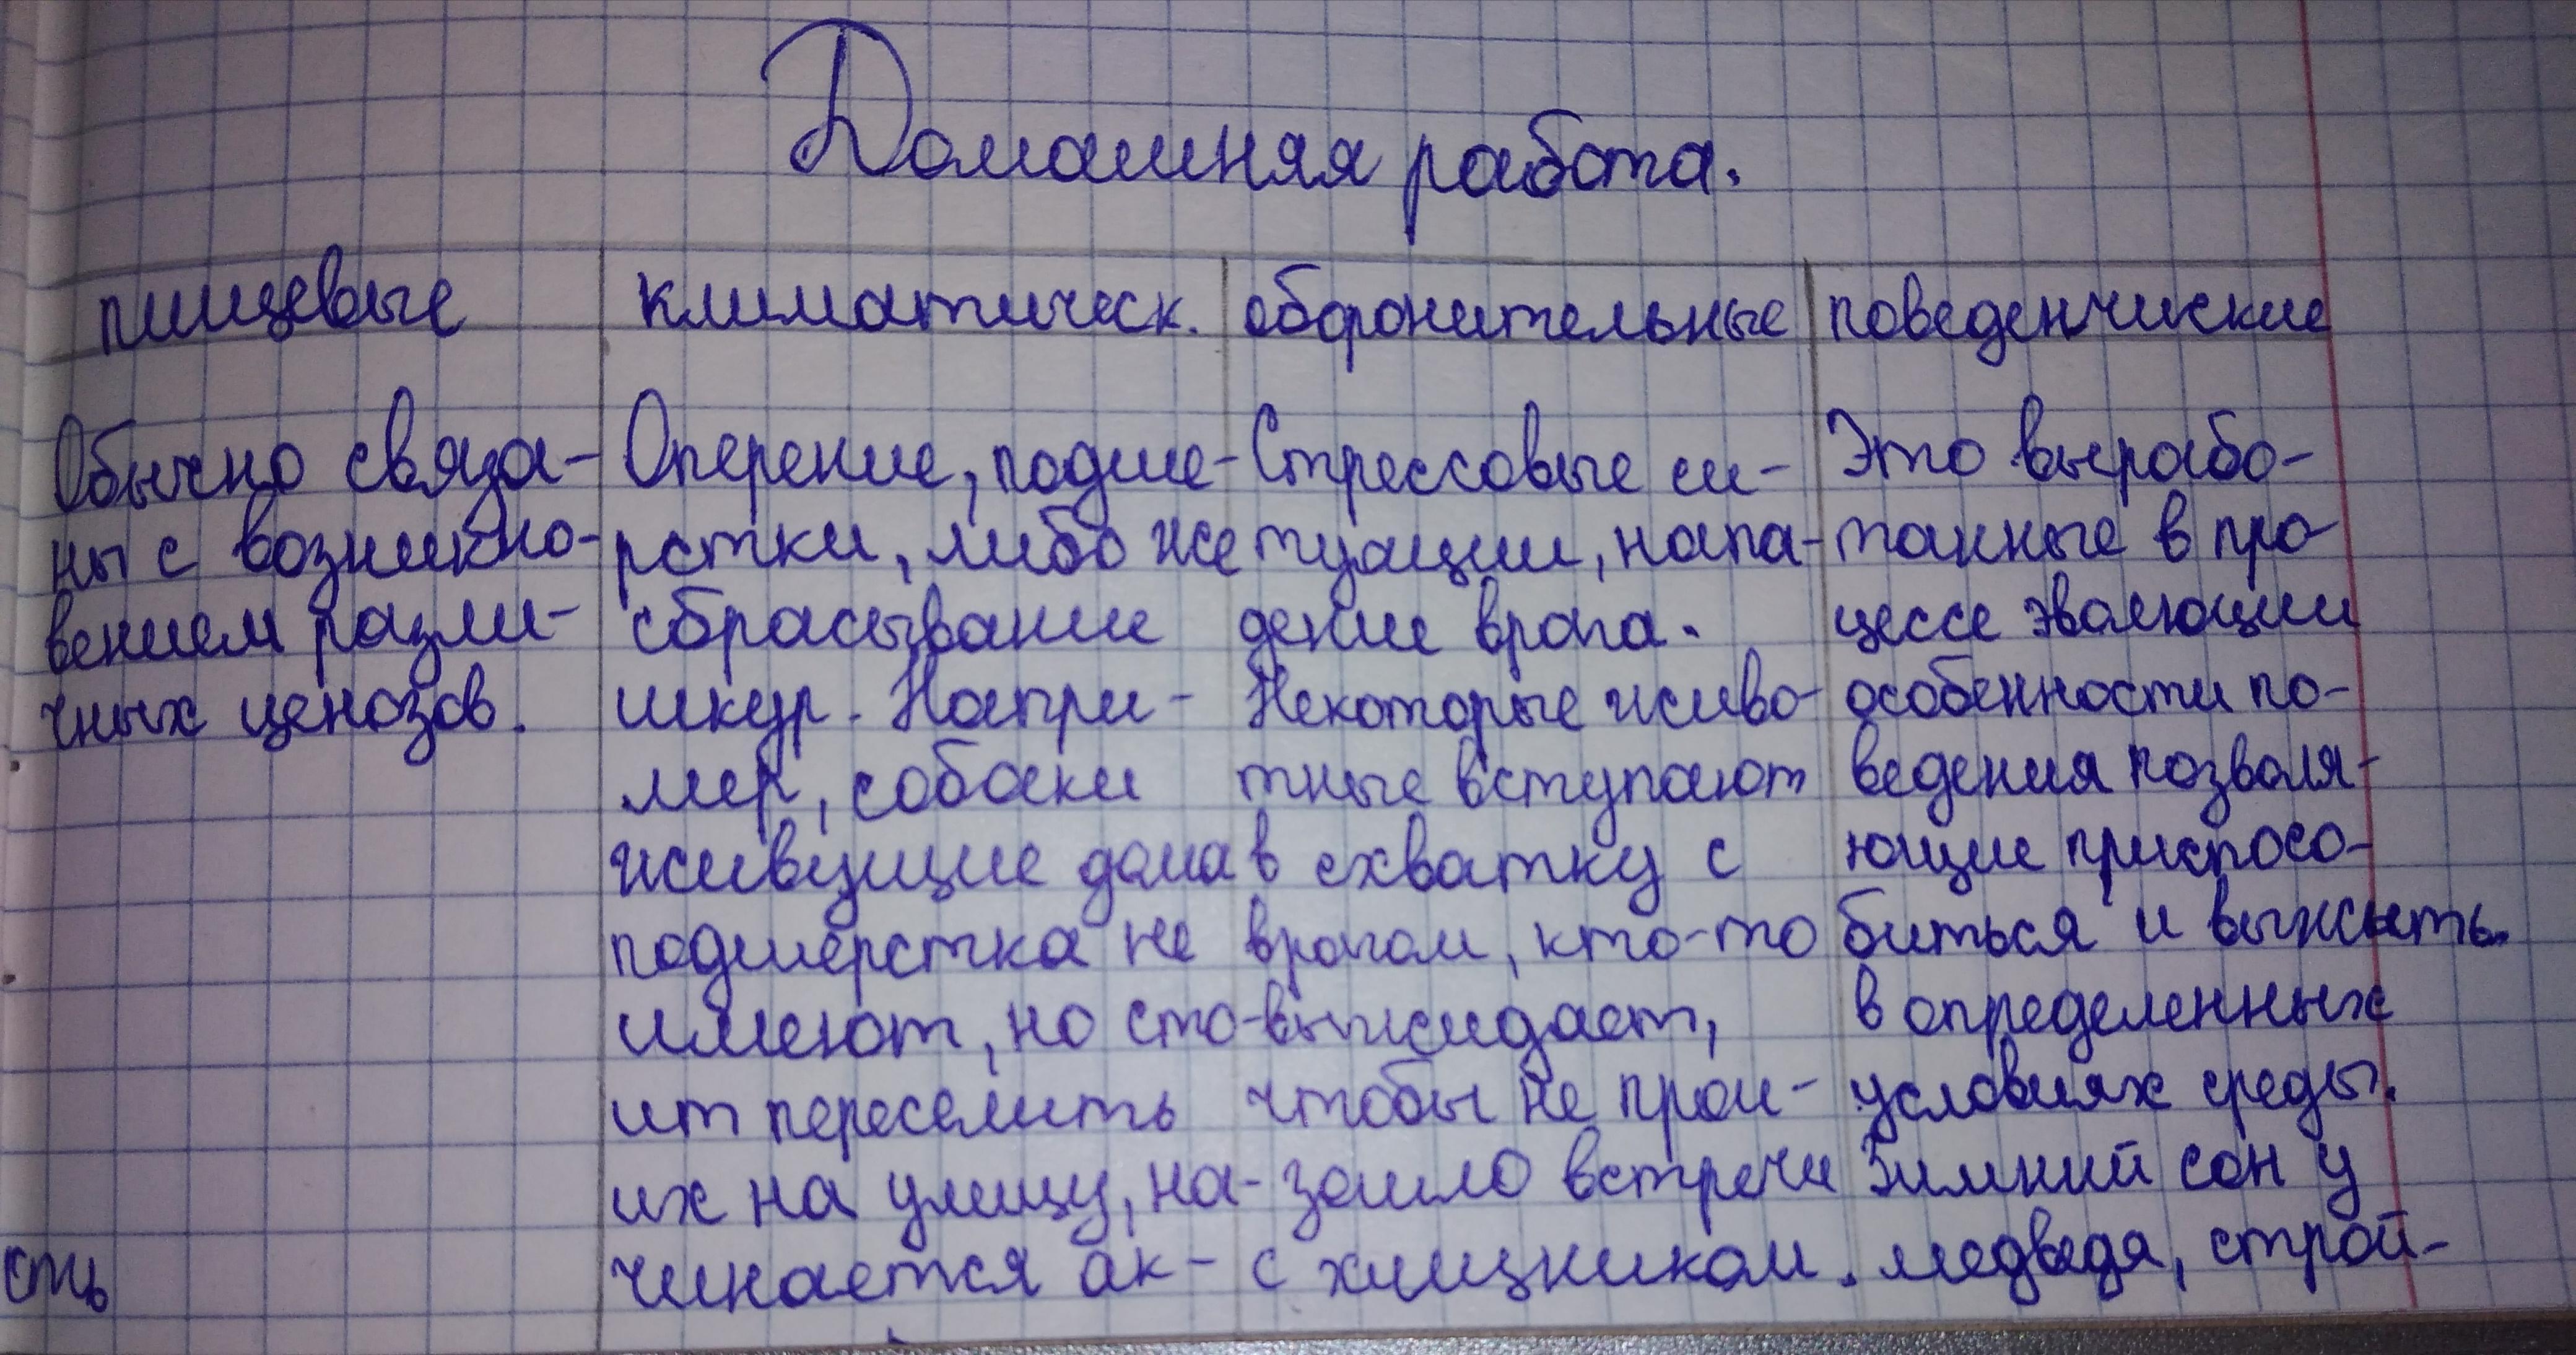 Домашняя работа.
пищевые
Обычно связа-
ны с возникно-
вением разли-
чных ценозов.
сть
климатическ.
Оперение, подше-
рстки, либо же
сбрасывание
шкур. Напри-
мер, собаки
живущие дома
подшерстка не
имеют, но сто-
ит переселить
их на улицу, на-
чинается ак-
оборонительные
Стрессовые си-
туации, напа-
дение врага.
Некоторые живо-
тные вступают
в схватку с
врагом, кто-то
выжидает,
чтобы не прои-
зошло встречи
с хищником.
поведенчиские
Это вырабо-
танные в про-
цессе эволюции
особенности по-
ведения позволя-
ющие приспосо-
биться и выжыть
в определенных
условиях среды.
Зимний сон у
медведя, строй-